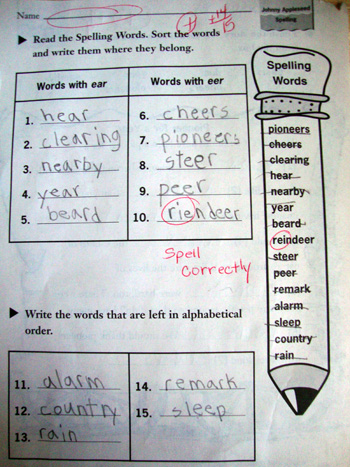 Name
+14
15
Johnny Appleseed
Spelling
▶ Read the Spelling Words. Sort the words
and write them where they belong.
Words with ear
Words with eer
1. hear
2. clearing
3. nearby
4. year
5. beard
6. cheers
7. pioneers
8. steer
9. peer
10. riendeer
Spell
Correctly
▶ Write the words that are left in alphabetical
order.
11. alarm
12. country
13. rain
14. remark
15. sleep
Spelling
Words
pioneers
cheers
clearing
hear
nearby
year
beard
reindeer
steer
peer
remark
alarm
sleep
country
rain